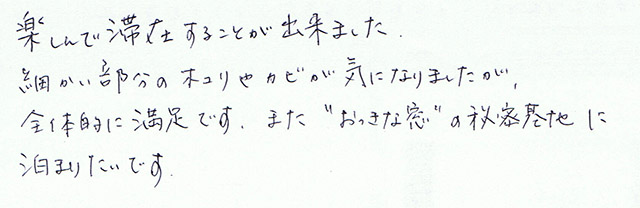 楽しんで滞在することが出来ました.
細かい部分のホコリやカビが気になりましたが,
全体的に満足です. また"おっきな窓"の秘密基地に
泊まりたいです.